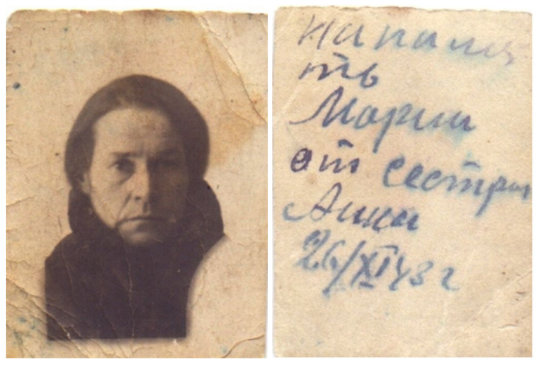 На памя
ть
Марии
от сестры
Анны
26/XI 43 г